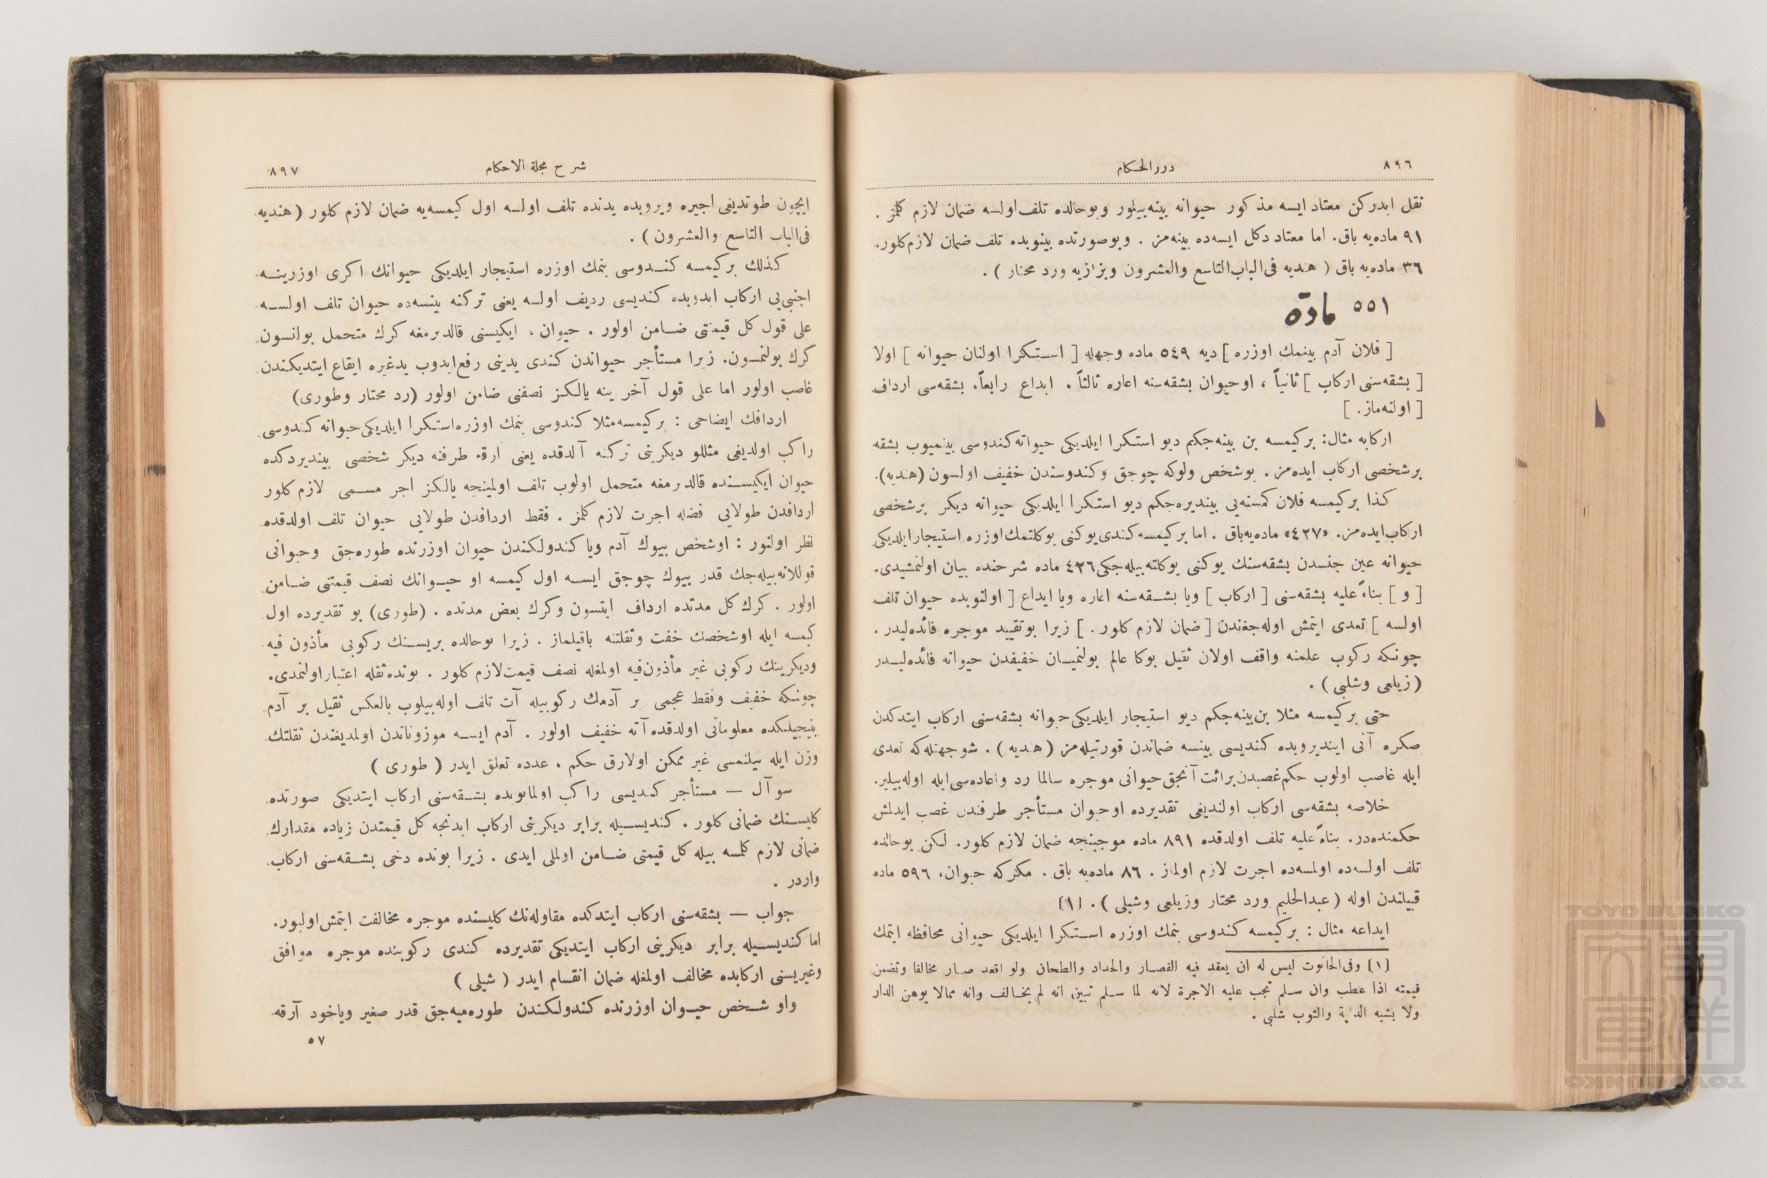 ٨٩٦
دررالحكام
نقل ايدركن معتاد ايسه مذكور حيوانه بينه‌بيلور وبوحالده تلف‌اولسه ضمان لازم كلمز .
٩١ ماده‌يه باق. اما معتاد دكل ايسه‌ده بينه‌مز . وبوصورتده بينوبده تلف ضمان لازم‌كلور.
٣٦ ماده‌يه باق ( هنديه فى‌الباب‌التاسع والعشرون وبزازيه ورد محتار ) .
٥٥١ مادّه
[ فلان آدم بينمك اوزره ] ديه ٥٤٩ ماده وجهله [ استكرا اولنان حيوانه ] اولا
[ بشقه‌سنى اركاب ] ثانياً ، اوحيوان بشقه‌سنه اعاره ثالثاً ، ابداع رابعاً، بشقه‌سى ارداف
[ اولنه‌ماز. ]
اركابه مثال: بركيمسه بن بينه‌جكم ديو استكرا ايلديكى حيوانه‌كندوسى بينميوب بشقه
برشخصى اركاب ايده‌مز . بوشخص ولوكه چوجق وكندوسندن خفيف اولسون (هنديه).
كذا بركيمسه فلان كمسنه‌يى بينديره‌جكم ديو استكرا ايلديكى حيوانه ديكر برشخصى
اركاب‌ايده‌مز. «٤٢٧» ماده‌يه‌باق . اما بركيمسه كندى‌يوكنى يوكلتمك‌اوزره استيجارايلديكى
حيوانه عين جنسدن بشقه‌سنك يوكنى يوكلته‌بيله‌جكى٤٢٦ ماده شرحنده بيان اولنمشيدى.
[ و ] بناءً عليه بشقه‌سنى [ اركاب ] ويا بشقه‌سنه اعاره ويا ايداع [ اولنوبده حيوان تلف
اولسه ] تعدى ايتمش اوله‌جغندن [ ضمان لازم كلور . ] زيرا بوتقييد موجره فائده‌ليدر .
چونكه ركوب علمنه واقف اولان ثقيل بوكا عالم بولنميان خفيفدن حيوانه فائده‌ليدر
(زيلعى وشلبى ) .
حتى بركيمسه مثلا بن‌بينه‌جكم ديو استيجار ايلديكى‌حيوانه بشقه‌سنى اركاب ايتدكدن
صكره آنى اينديروبده كنديسى بينسه ضماندن قورتيله‌مز (هنديه ) . شوجهتله‌كه تعدى
ايله غاصب اولوب حكم‌غصبدن برائت آنجق‌حيوانى موجره سالما رد واعاده‌سى‌ايله اوله‌بيلير.
خلاصه بشقه‌سى اركاب اولنديغى تقديرده اوحيوان مستأجر طرفندن غصب ايدلمش
حكمنده‌در. بناءً عليه تلف اولدقده ٨٩١ ماده موجبنجه ضمان لازم كلور. لكن بوحالده
تلف اولسه‌ده اولمسه‌ده اجرت لازم اولماز . ٨٦ ماده‌يه باق . مكركه حيوان، ٥٩٦ ماده
قبيلندن اوله ( عبدالحليم ورد محتار وزيلعى وشلبى ) . [١]
ايداعه مثال : بركيمسه كندوسى بنمك اوزره استكرا ايلديكى حيوانى محافظه ايتمك
[١] وفى‌الحانوت ليس له ان يقعد فيه القصار والحداد والطحان ولو اقعد صار مخالفا وتضمن
قيمته اذا عطب وان سلم تجب عليه الاجرة لانه لما سلم تبين انه لم يخالف وانه ممالا يوهن الدار
ولا يشبه الدابة والثوب شلبى .
شرح مجلة الاحكام
٨٩٧
ايچون طوتديغى اجيره ويروبده يدنده تلف اولسه اول كيمسه‌يه ضمان لازم كلور ( هنديه
فى‌الباب التاسع والعشرون ) .
كذلك بركيمسه كندوسى بنمك اوزره استيجار ايلديكى حيوانك اكرى اوزرينه
اجنبى‌يى اركاب ايدوبده كنديسى رديف اولسه يعنى تركنه بينسه‌ده حيوان تلف اولسه
على قول كل قيمتنى ضامن اولور . حيوان ، ايكيسنى قالديرمغه كرك متحمل بولنسون
كرك بولنمسون. زيرا مستأجر حيواندن كندى يدينى رفع‌ايدوب يدغيره ايقاع ايتديكندن
غاصب اولور اما على قول آخر ينه يالكز نصفنى ضامن اولور (رد محتار وطورى)
اردافك ايضاحى : بركيمسه‌مثلا كندوسى بنمك اوزره‌استكرا ايلديكى‌حيوانه كندوسى
راكب اولديغى مثللو ديكرينى تركنه آلدقده يعنى آرقه طرفنه ديكر شخصى بينديردكده
حيوان ايكيسنده قالديرمغه متحمل اولوب تلف اولمينجه يالكز اجر مسمى لازم كلور
اردافدن طولايى فضله اجرت لازم كلمز . فقط اردافدن طولايى حيوان تلف اولدقده
نظر اولنور : اوشخص بيوك آدم ويا كندولكندن حيوان اوزرنده طوره‌جق وحيوانى
قوللانه‌بيله‌جك قدر بيوك چوجق ايسه اول كيمسه او حيوانك نصف قيمتنى ضامن
اولور . كرك‌كل مدتده ارداف ايتسون وكرك بعض مدتده . (طورى) بو تقديرده اول
كيمسه ايله اوشخصك خفت وثقلتنه باقيلماز . زيرا بوحالده بريسنك ركوبى مأذون فيه
وديكرينك ركوبى غير مأذون‌فيه اولمغله نصف قيمت‌لازم كلور . بونده‌ثقله اعتباراولنمدى.
چونكه خفيف وفقط عجمى بر آدمك ركوبيله آت تلف اوله‌بيلوب بالعكس ثقيل بر آدم
بينيجيلكده معلوماتى اولدقده آته خفيف اولور . آدم ايسه موزوناتدن اولمديغندن ثقلتك
وزن ايله بيلنمسى غير ممكن اولارق حكم ، عدده تعلق ايدر ( طورى )
سوآل — مستأجر كنديسى راكب اولمايوبده بشقه‌سنى اركاب ايتديكى صورتده
كليسنك ضمانى كلور . كنديسيله برابر ديكرينى اركاب ايدنجه كل قيمتدن زياده مقدارك
ضمانى لازم كلمسه بيله كل قيمتى ضامن اولملى ايدى . زيرا بونده دخى بشقه‌سنى اركاب
واردر .
جواب — بشقه‌سنى اركاب ايتدكده مقاوله‌نك كليسنده موجره مخالفت ايتمش‌اوليور.
اما كنديسيله برابر ديكرينى اركاب ايتديكى تقديرده كندى ركوبنده موجره موافق
وغيريسنى اركابده مخالف اولمغله ضمان انقسام ايدر ( شلبى )
واو شخص حيوان اوزرنده كندولكندن طوره‌ميه‌جق قدر صغير وياخود آرقه
٥٧
TOYO BUNKO
東洋文庫
TOYO BUNKO